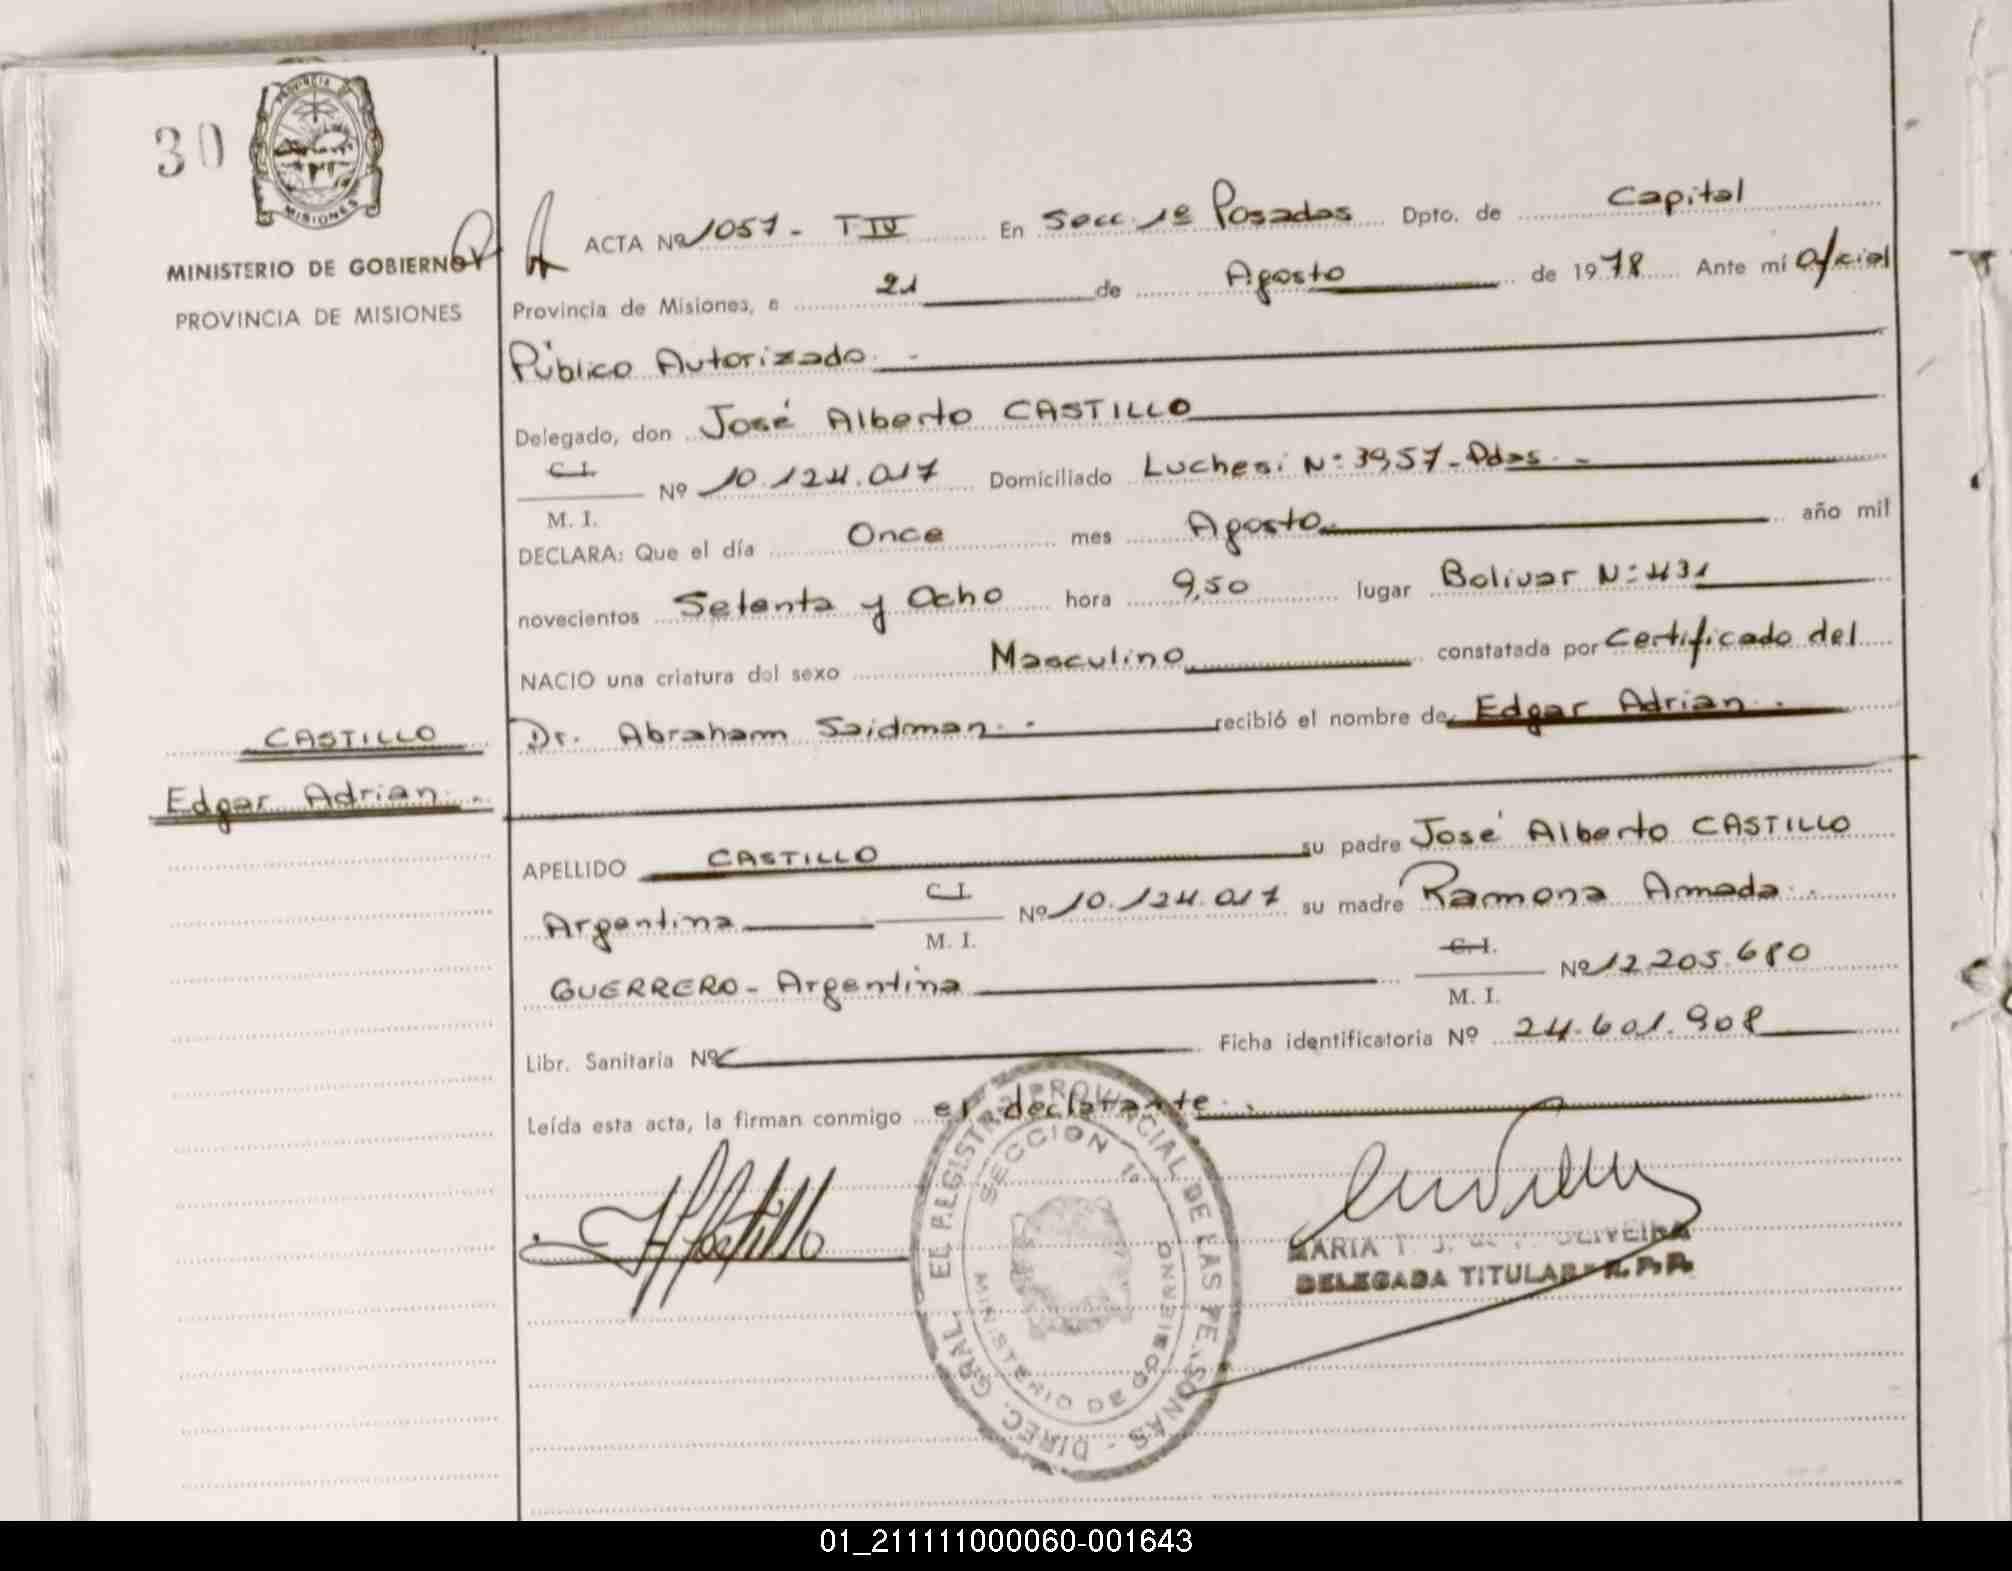 30
PROVINCIA DE
MISIONES
MINISTERIO DE GOBIERNO
PROVINCIA DE MISIONES
ACTA Nº 1057 - T IV En Secc. 1º Posadas Dpto. de Capital
Provincia de Misiones, a 21 de Agosto de 1978 Ante mí Oficial
Público Autorizado. -
Delegado, don José Alberto CASTILLO
C. I.
Nº 10.124.017 Domiciliado Luchesi Nº: 3957 - Pdas. -
M. I.
DECLARA: Que el día Once mes Agosto. año mil
novecientos Setenta y Ocho hora 9,50 lugar Bolívar Nº: 431
NACIO una criatura del sexo Masculino constatada por Certificado del
Dr. Abraham Saidman. - recibió el nombre de Edgar Adrian. -
CASTILLO
Edgar Adrian. -
APELLIDO CASTILLO su padre José Alberto CASTILLO
Argentina C. I. Nº 10.124.017 su madre Ramona Amada. -
M. I.
GUERRERO - Argentina C. I. Nº 12.205.680
M. I.
Libr. Sanitaria Nº Ficha identificatoria Nº 24.601.908
Leída esta acta, la firman conmigo el declarante. -
DIREC. GRAL. EL REGISTRO PROVINCIAL DE LAS PERSONAS -
SECCION 1º
MINISTERIO DE GOBIERNO
MARIA OLIVEIRA
DELEGADA TITULAR R. P. P.
01_211111000060-001643